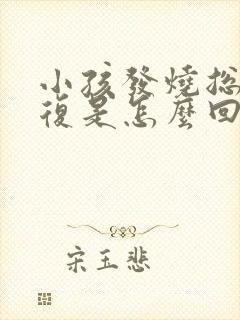 小孩發燒總
復是怎麼回
宋玉悲